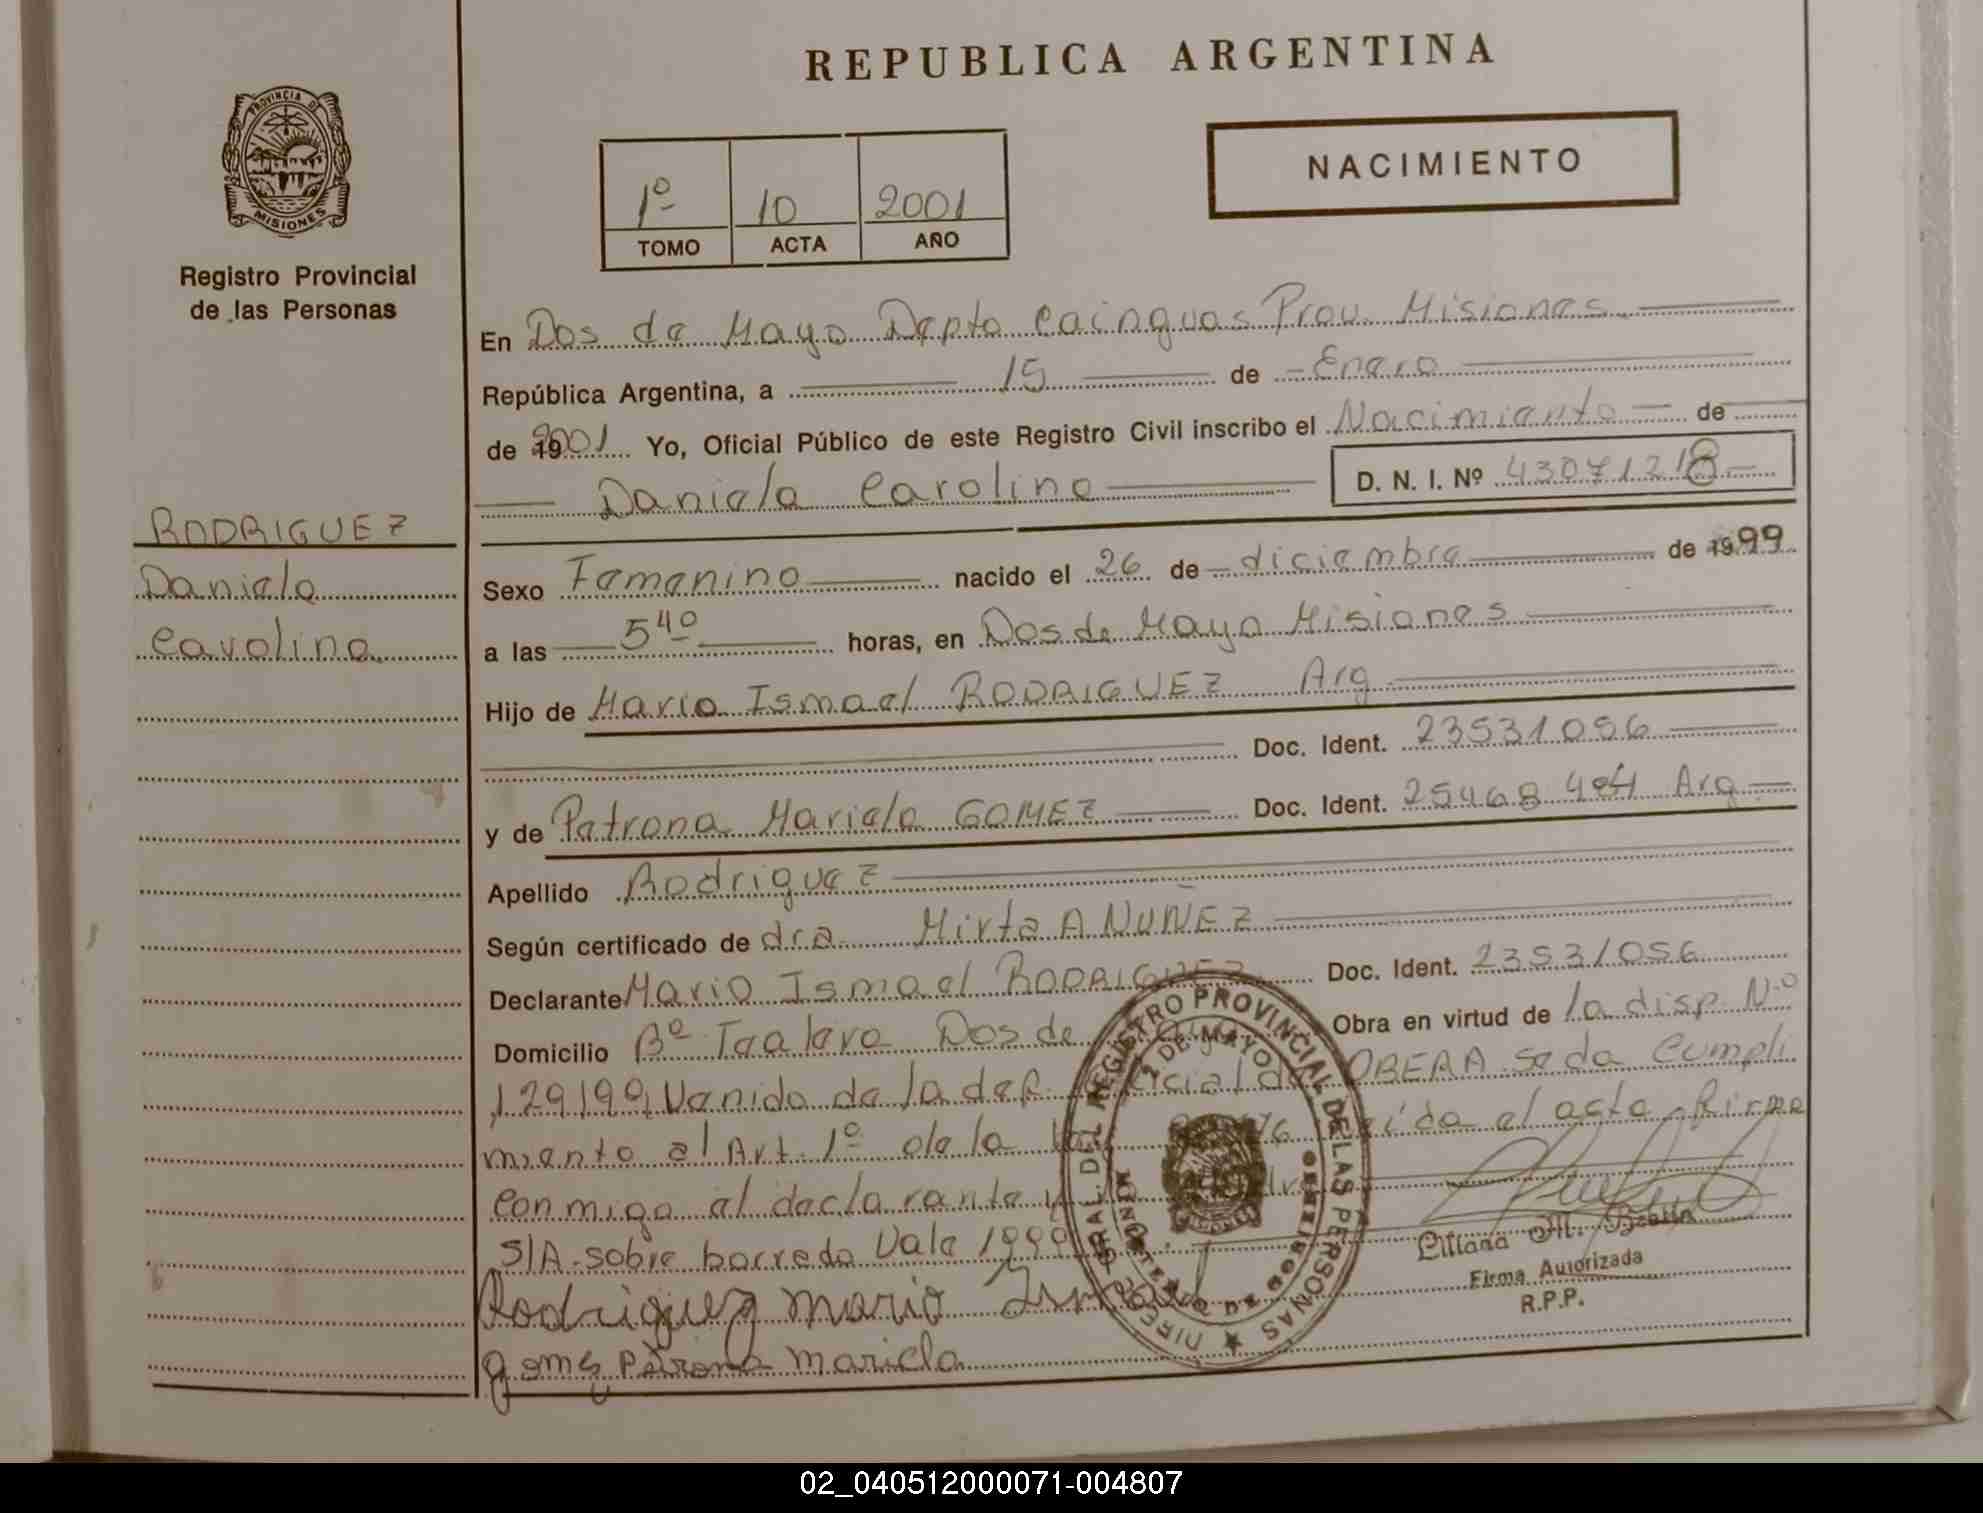 REPUBLICA ARGENTINA
PROVINCIA DE
MISIONES
Registro Provincial
de las Personas
NACIMIENTO
1º 10 2001
TOMO ACTA AÑO
En Dos de Mayo Depto Cainguas Prov. Misiones.
República Argentina, a 15 de Enero
de 2001 Yo, Oficial Público de este Registro Civil inscribo el Nacimiento de
Daniela Carolina D. N. I. Nº 43071218
RODRIGUEZ
Daniela
Carolina
Sexo Femenino nacido el 26 de diciembre de 1999
a las 5 40 horas, en Dos de Mayo Misiones
Hijo de Mario Ismael RODRIGUEZ Arg
Doc. Ident. 23531056
y de Petrona Mariela GOMEZ Doc. Ident. 25468 484 Arg
Apellido Rodriguez
Según certificado de dra. Mirta A NUÑEZ
Declarante Mario Ismael RODRIGUEZ Doc. Ident. 23531056
Domicilio Bº Dos de Obra en virtud de la disp. Nº
129/99 Venida de la del. de OBERA se da cumpli
miento al Art. 1º de la el acta firma
conmigo el declarante y
S/A. sobre borrado Vale 1999
Rodriguez mario
gomez petrona mariela
DIRECC. GRAL. DEL REGISTRO PROVINCIAL DE LAS PERSONAS
2 DE MAYO
MISIONES
Liliana M.
Firma Autorizada
R.P.P.
02_040512000071-004807